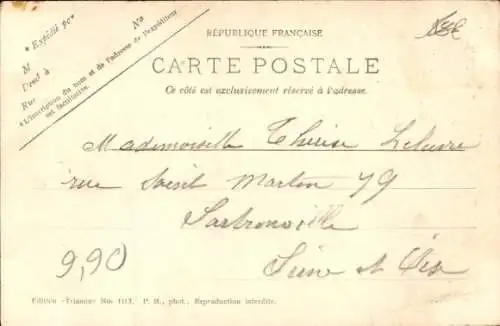 RÉPUBLIQUE FRANÇAISE
CARTE POSTALE
Ce côté est exclusivement réservé à l'adresse.
« Expédié pr
M
Demt à
Rue No
« L'inscription du nom et de l'adresse de l'expéditeur
est facultative.
Mademoiselle Thérèse Lelievre
rue Saint Martin 79
Sartrouville
Seine et Oise
9,90
Edition «Trianon» No. 1113. P. H., phot., Reproduction interdite.